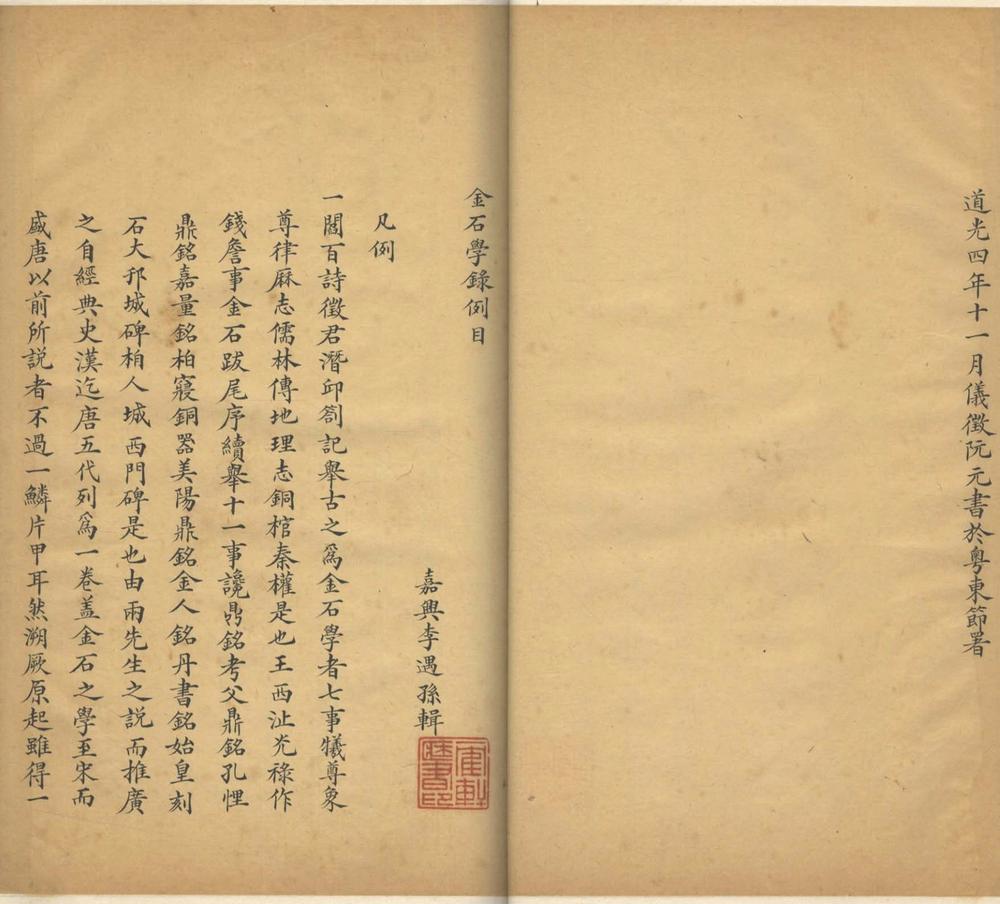 道光四年十一月儀徵阮元書於粵東節署
金石學錄例目
嘉興李遇孫輯
凡例
一閻百詩徵君潛邱劄記舉古之爲金石學者七事犧尊象
尊律厤志儒林傳地理志銅棺秦權是也王西沚光祿作
錢詹事金石跋尾序續舉十一事讒鼎銘考父鼎銘孔悝
鼎銘嘉量銘柏寢銅器美陽鼎銘金人銘丹書銘始皇刻
石大邳城碑柏人城西門碑是也由兩先生之說而推廣
之自經典史漢迄唐五代列爲一卷盖金石之學至宋而
盛唐以前所說者不過一鱗片甲耳然溯厥原起雖得一